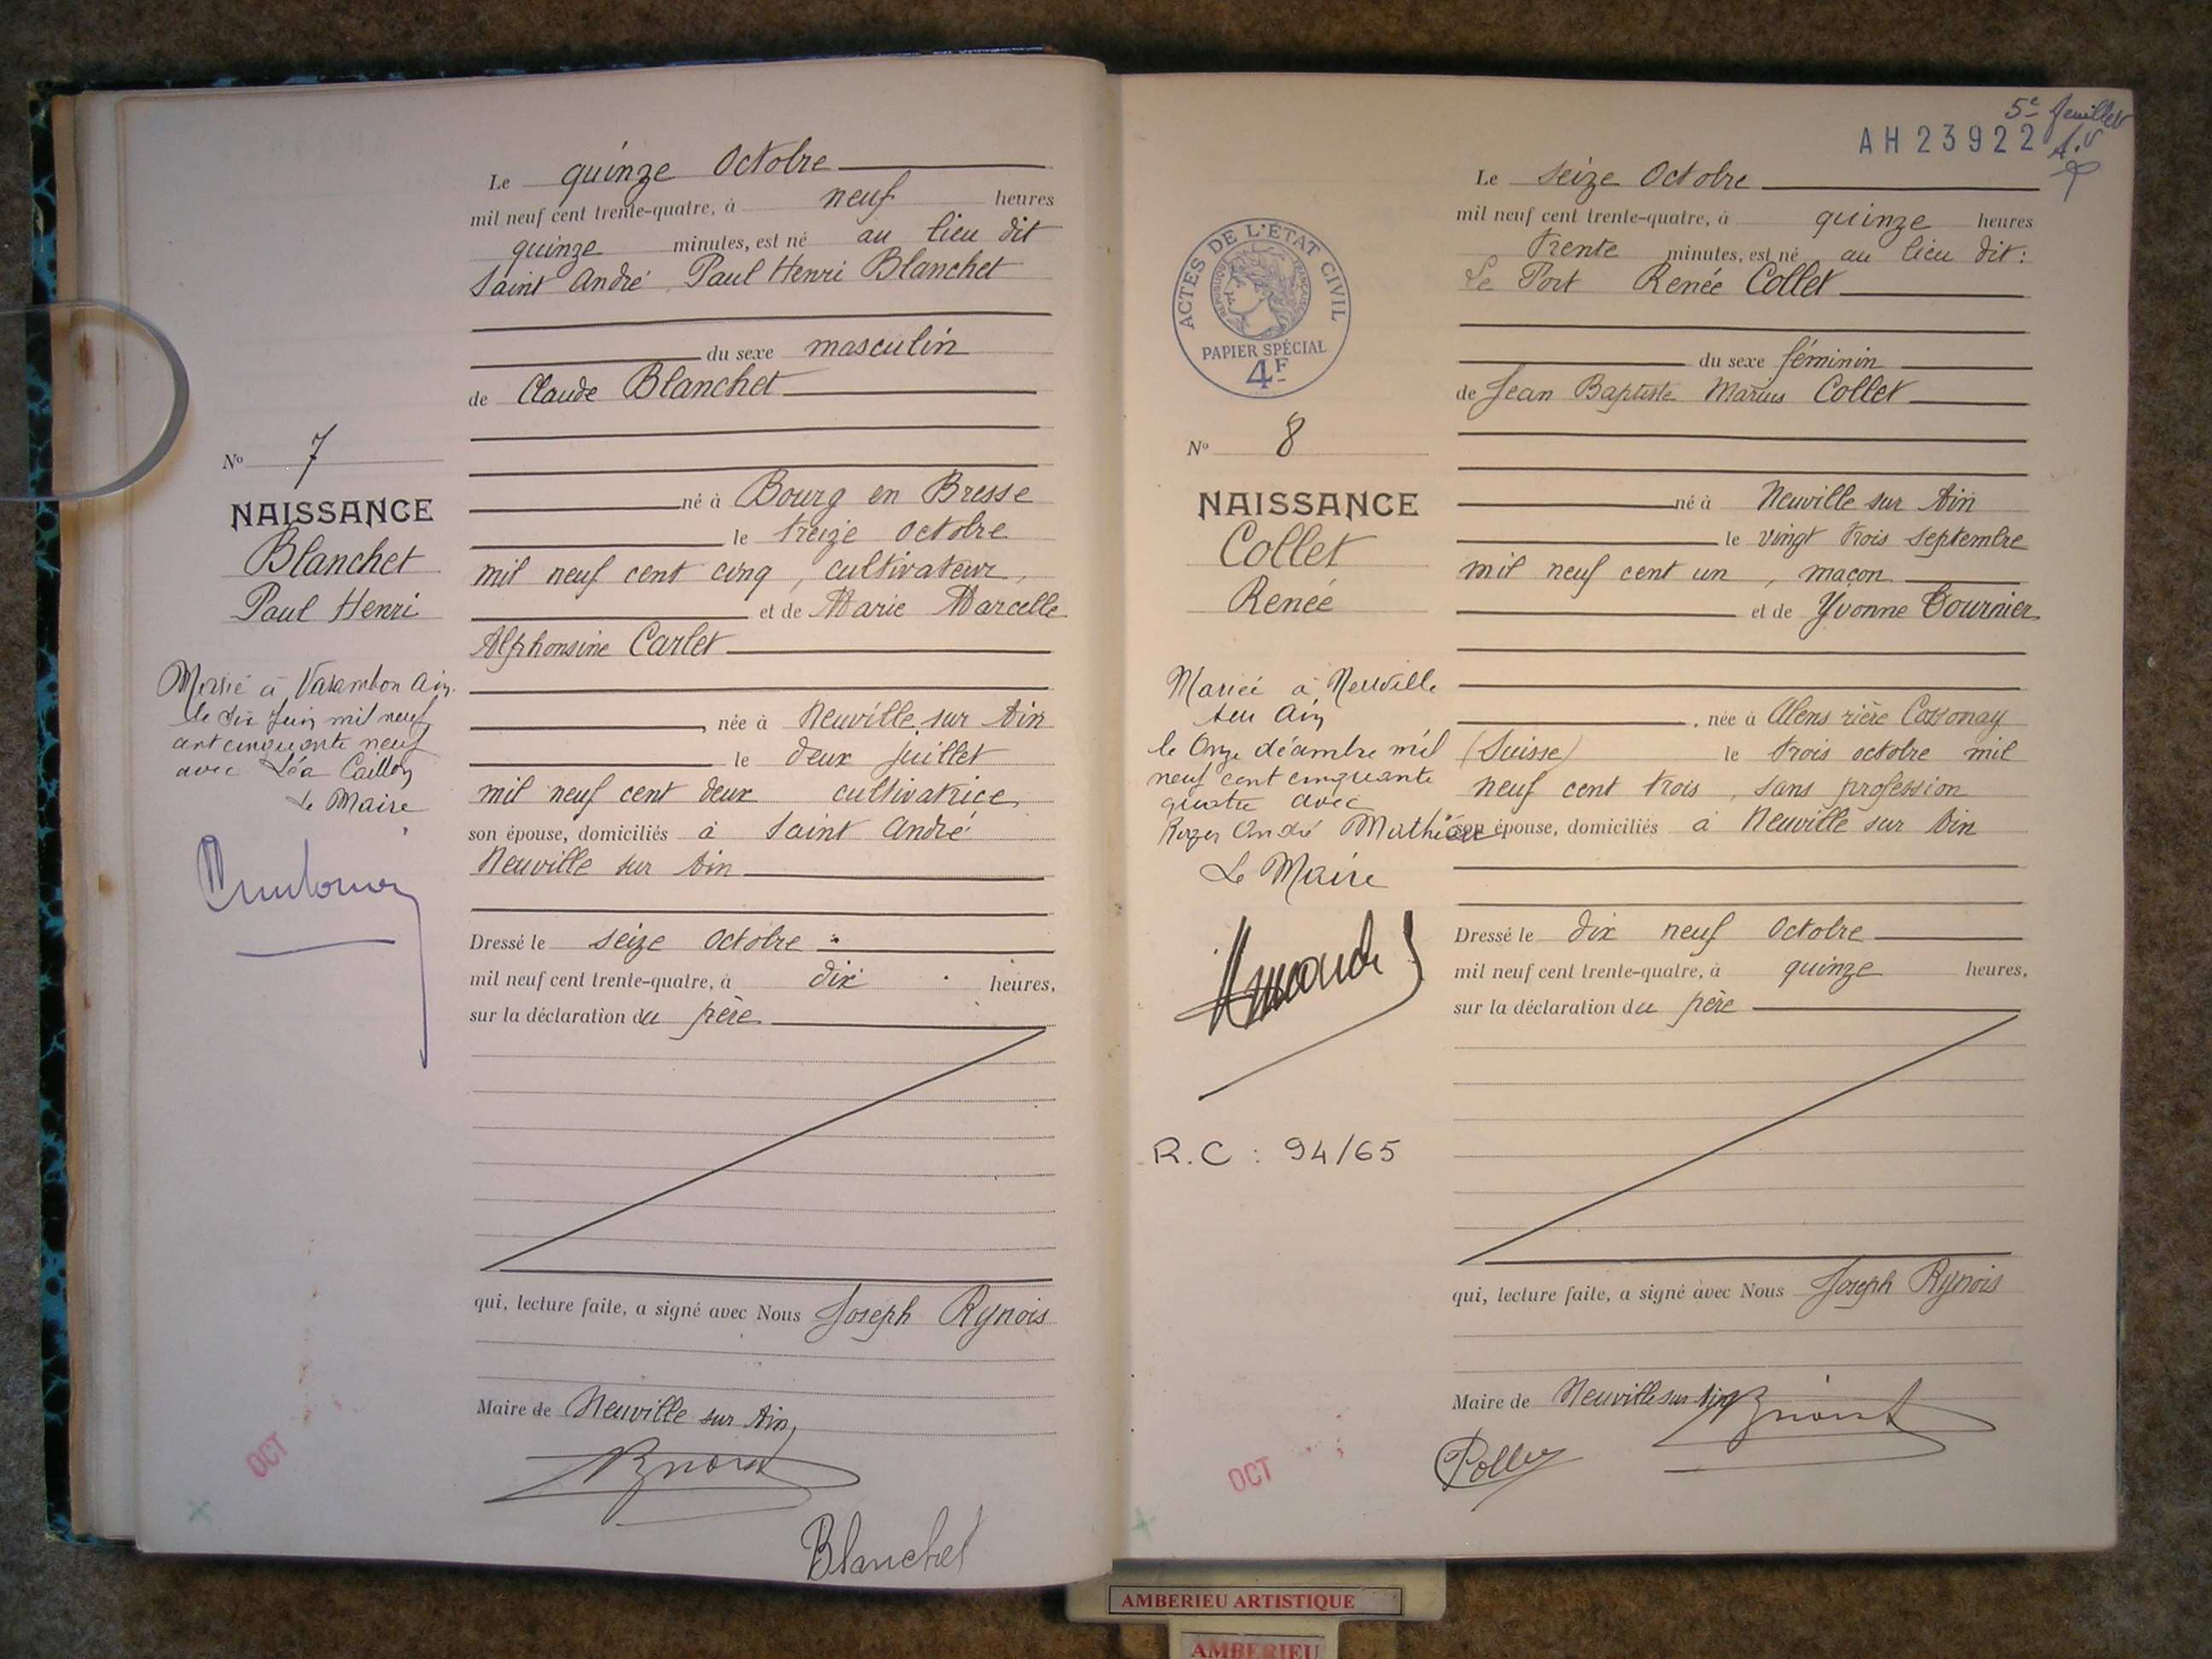 Le quinze Octobre
mil neuf cent trente-quatre, à neuf heures
quinze minutes, est né au lieu dit
Saint André Paul Henri Blanchet
du sexe masculin
de Claude Blanchet
né à Bourg en Bresse
le treize Octobre
mil neuf cent cinq, cultivateur,
et de Marie Marcelle
Alphonsine Carlet
, née à Neuville sur Ain
le deux juillet
mil neuf cent deux cultivatrice
son épouse, domiciliés à Saint André
Neuville sur Ain
Dressé le seize Octobre
mil neuf cent trente-quatre, à dix heures,
sur la déclaration du père
qui, lecture faite, a signé avec Nous Joseph Rynois
Maire de Neuville sur Ain,
Blanchet
No 7
NAISSANCE
Blanchet
Paul Henri
Marié à Varambon Ain
le dix Juin mil neuf
cent cinquante neuf
avec Léa Caillon
Le Maire
OCT
5e feuillet
AH23922
Le seize Octobre
mil neuf cent trente-quatre, à quinze heures
trente minutes, est né au lieu dit :
Le Port Renée Collet
du sexe féminin
de Jean Baptiste Marius Collet
né à Neuville sur Ain
le vingt trois septembre
mil neuf cent un, maçon
et de Yvonne Tournier
, née à Alens rière Cossonay
(Suisse) le trois octobre mil
neuf cent trois, sans profession
son épouse, domiciliés à Neuville sur Ain
Dressé le dix neuf Octobre
mil neuf cent trente-quatre, à quinze heures,
sur la déclaration du père
qui, lecture faite, a signé avec Nous Joseph Rynois
Maire de Neuville sur Ain
ACTES DE L'ÉTAT CIVIL
RÉPUBLIQUE FRANÇAISE
PAPIER SPÉCIAL
4F
No 8
NAISSANCE
Collet
Renée
Mariée à Neuville
sur Ain
le Onze décembre mil
neuf cent cinquante
quatre avec
Roger André Mathieu
Le Maire
R.C : 94/65
OCT
AMBERIEU ARTISTIQUE
AMBERIEU